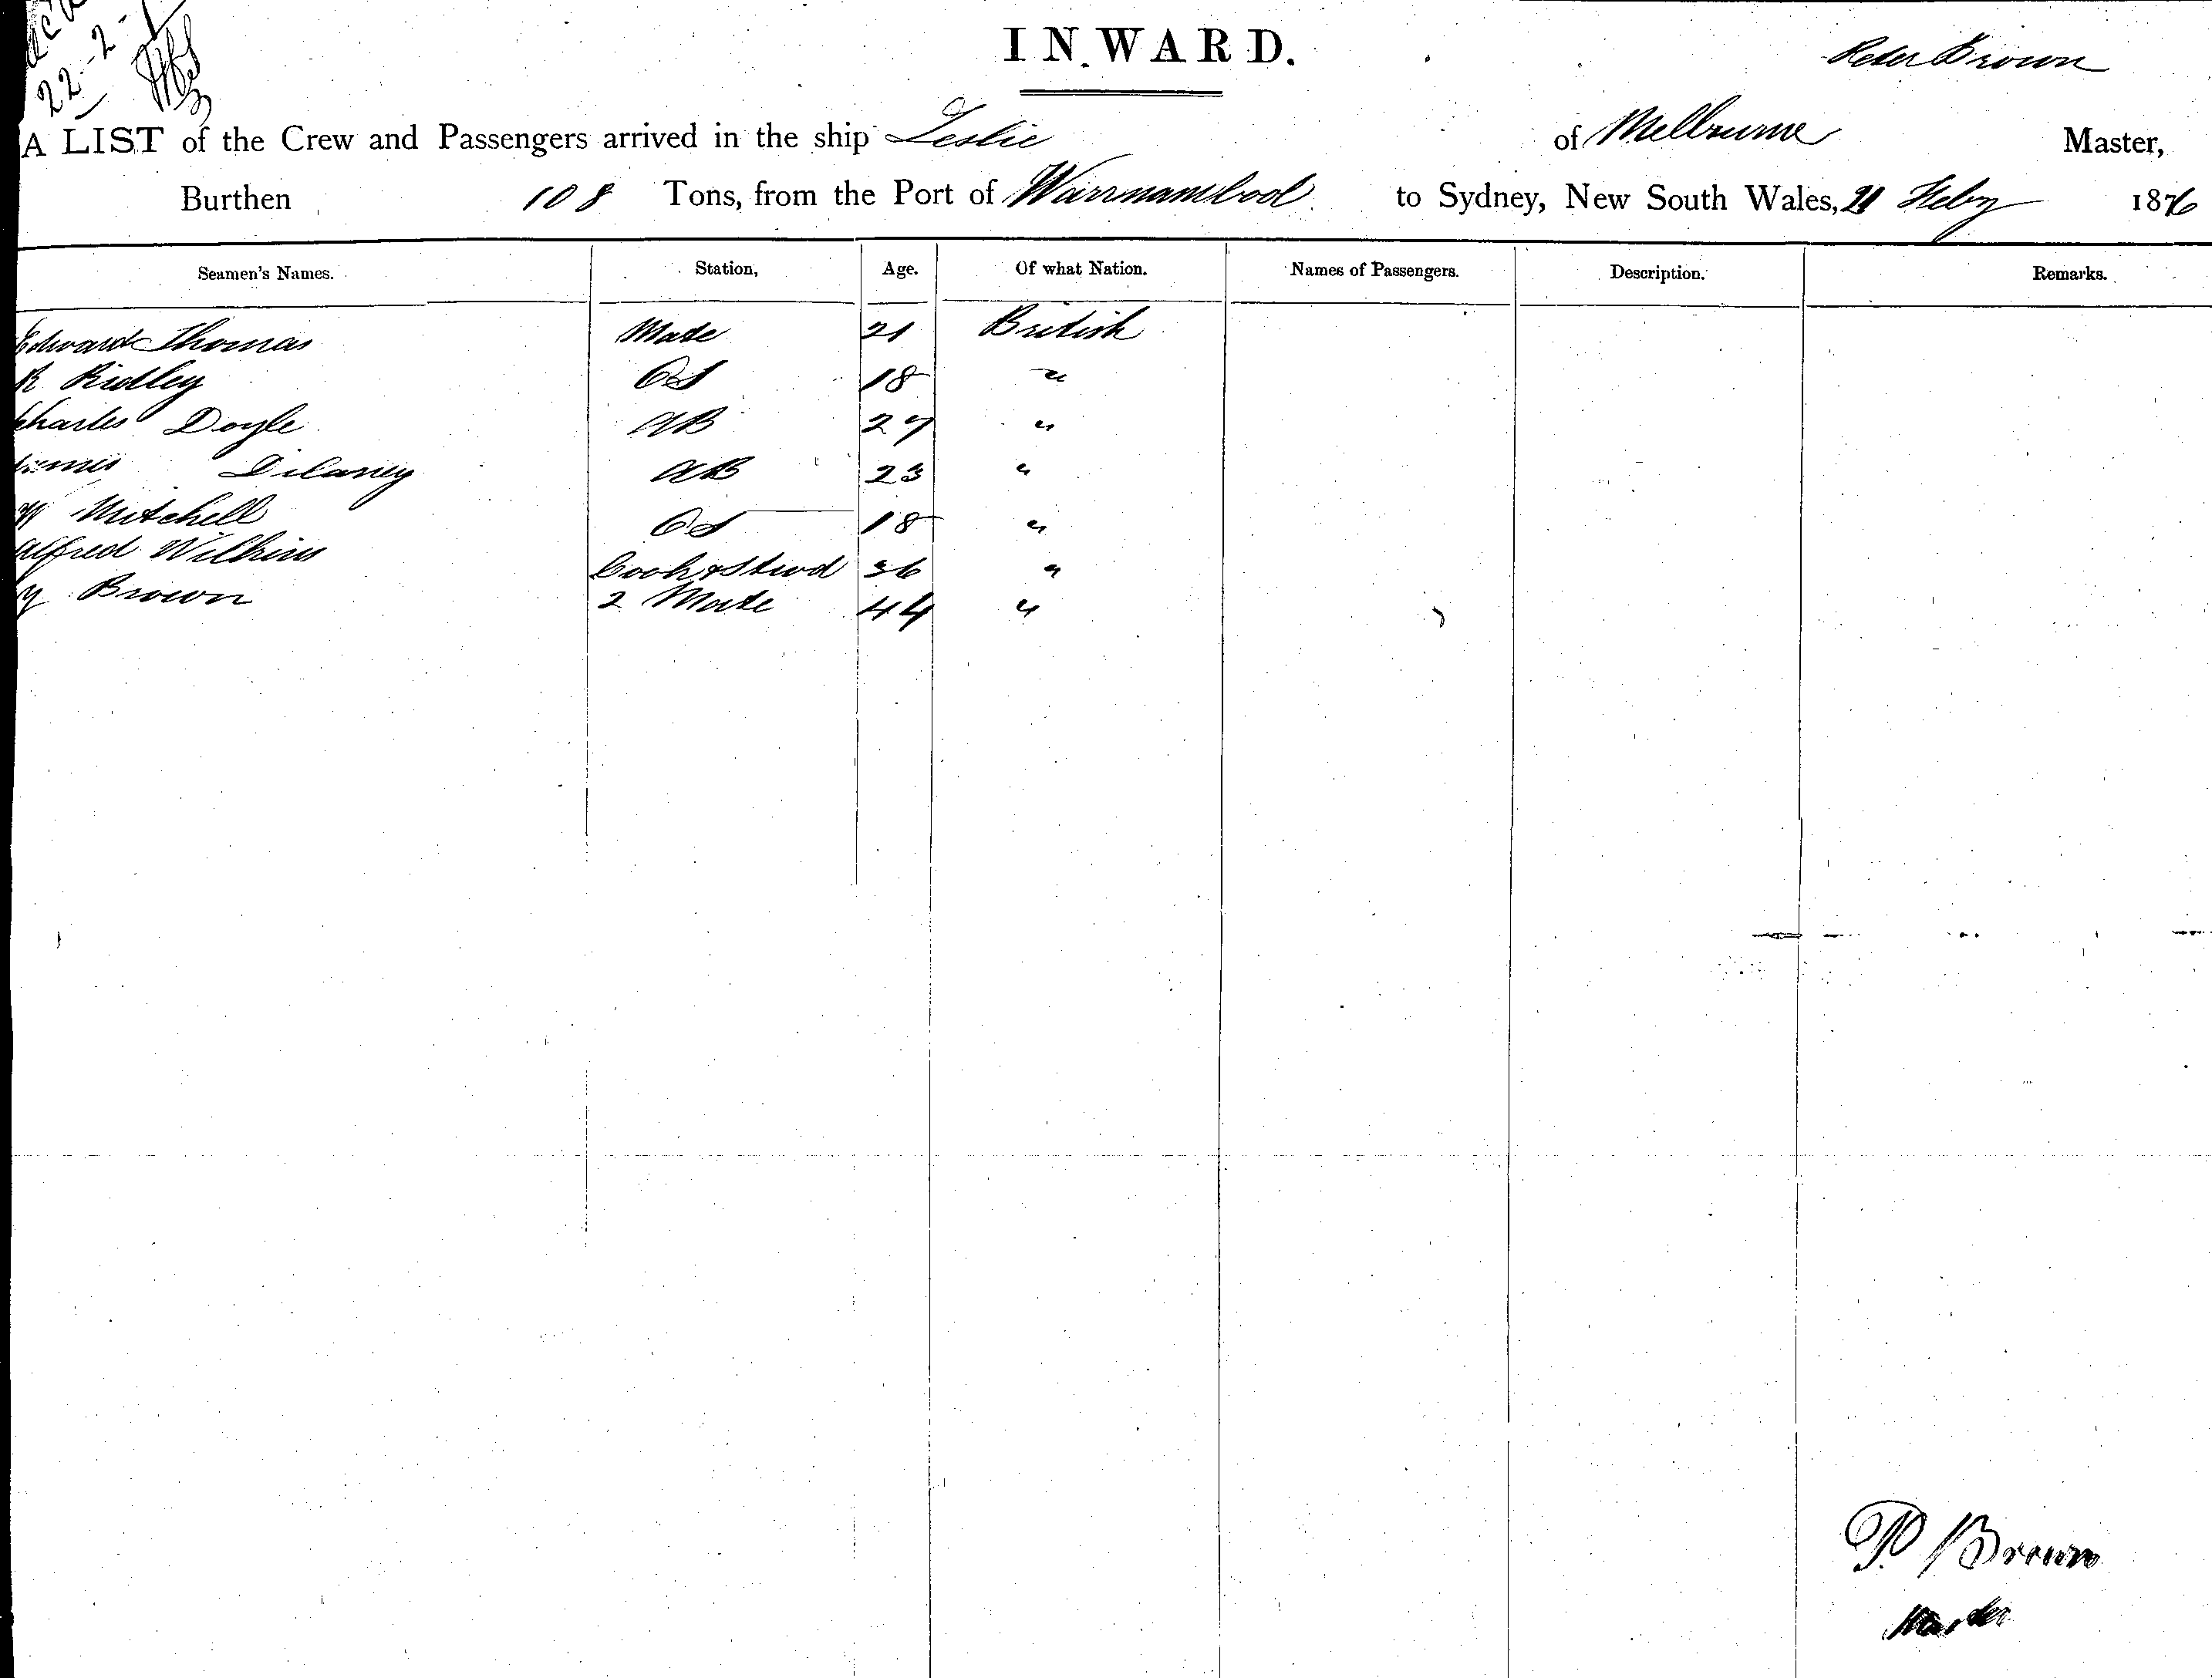 22-2-
INWARD.
Peter Brown
A LIST of the Crew and Passengers arrived in the ship Leslie of Melbourne Master,
Burthen 108 Tons, from the Port of Warrnambool to Sydney, New South Wales, 21 Feby 1876
Seamen's Names. Station, Age. Of what Nation. Names of Passengers. Description. Remarks.
Edward Thomas Mate 21 British
R Ridley OS 18 "
Charles Doyle AB 27 "
James Dilaney AB 23 "
W Mitchell OS 18 "
Alfred Wilkins Cook & Stwd 36 "
Brown 2 Mate 44 "
P. Brown
Master